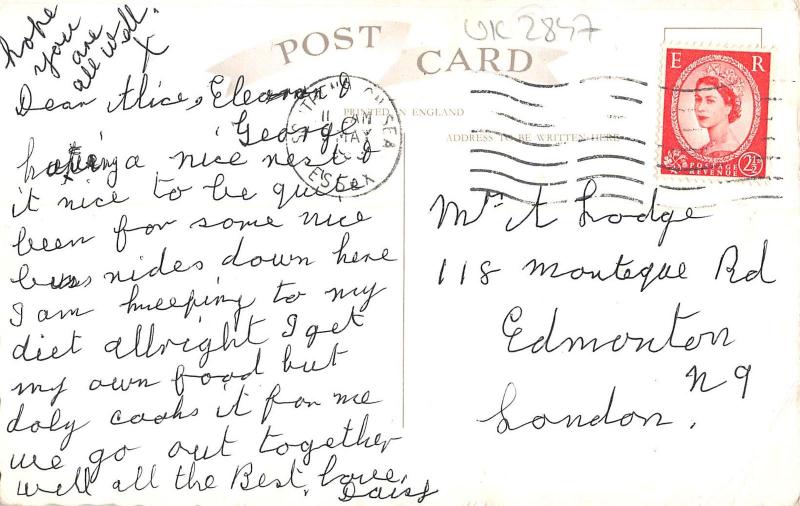 hope
you
are
all well.
X
UK 2847
POST CARD
PRINTED IN ENGLAND
ADDRESS TO BE WRITTEN HERE
E R
POSTAGE
REVENUE
2½
ESSEX
Dear Alice, Eleanor &
George
having a nice rest &
it nice to be quite
been for some nice
bus rides down here
I am keeping to my
diet allright I get
my own food but
doly cooks it for me
we go out together
well all the Best, Love,
Daisy
Mrs A Lodge
118 Monteque Rd
Edmonton
N9
London,